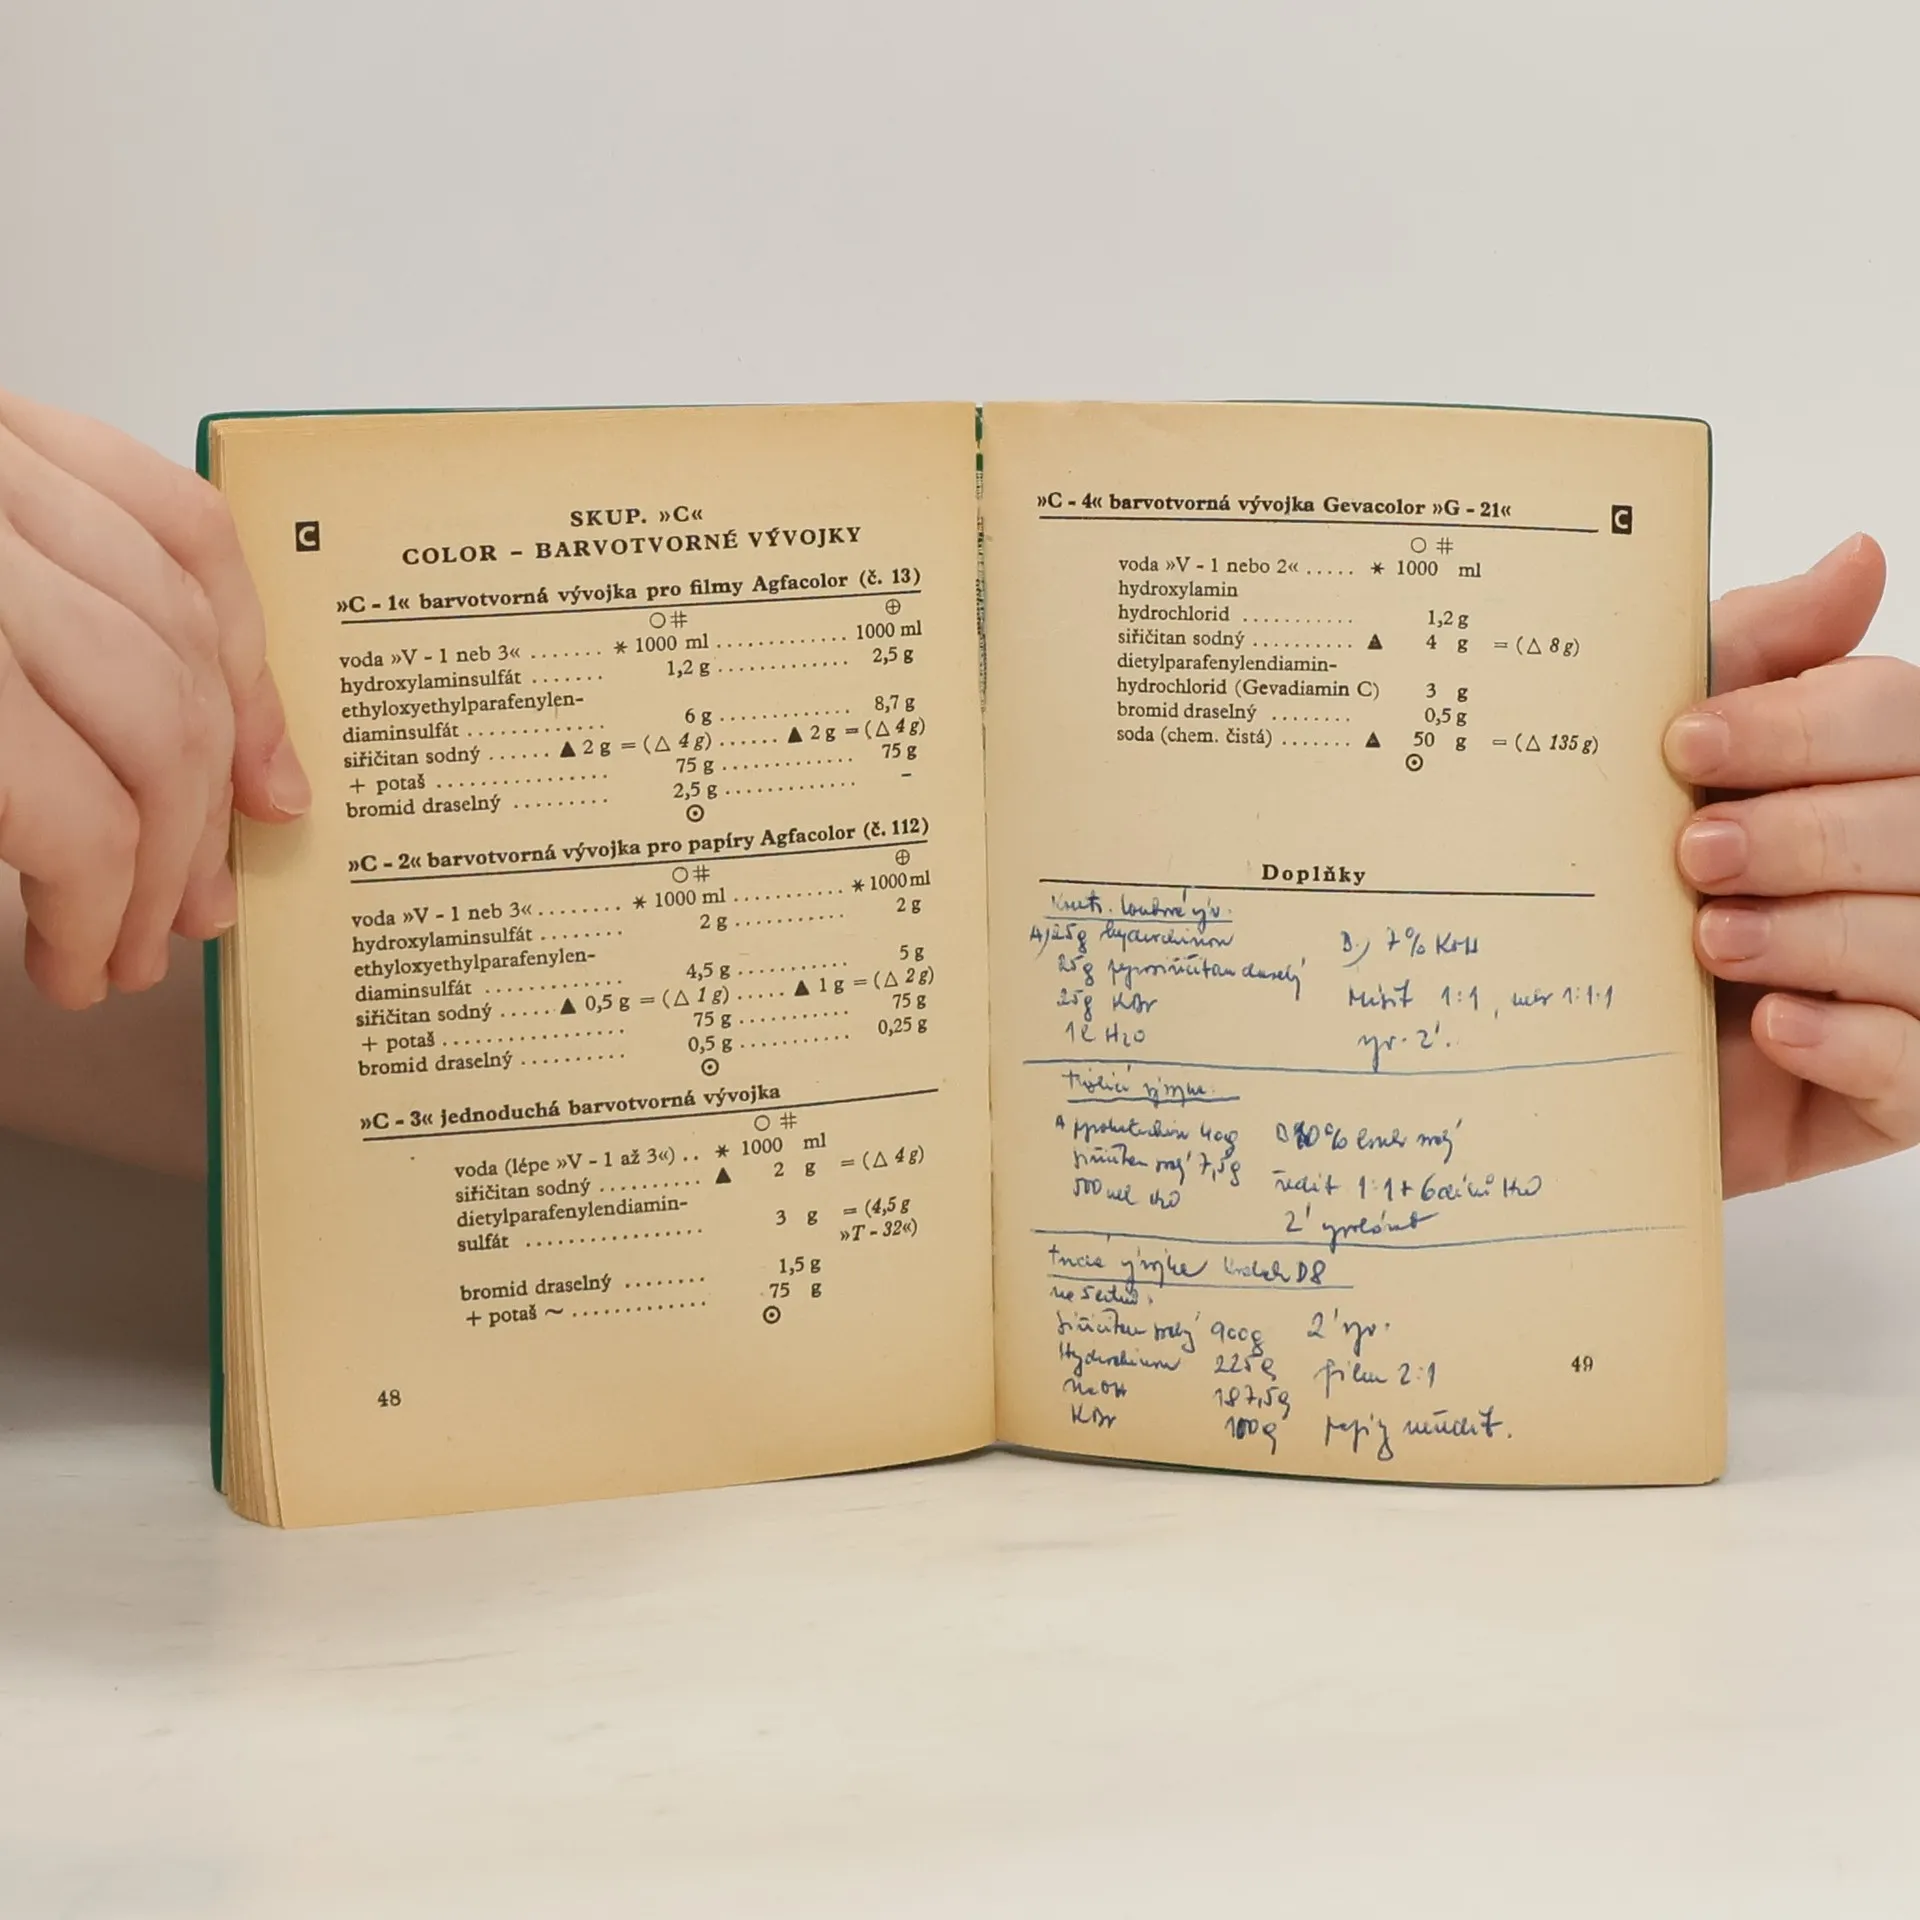 C
SKUP. »C«
COLOR – BARVOTVORNÉ VÝVOJKY
»C - 1« barvotvorná vývojka pro filmy Agfacolor (č. 13)
○ # ⊕
voda »V - 1 neb 3« ....... * 1000 ml ............. 1000 ml
hydroxylaminsulfát ....... 1,2 g ............. 2,5 g
ethyloxyethylparafenylen-
diaminsulfát ............. 6 g ............. 8,7 g
siřičitan sodný ...... ▲ 2 g = (△ 4 g) ...... ▲ 2 g = (△ 4 g)
+ potaš ................ 75 g ............. 75 g
bromid draselný ......... 2,5 g ............. –
⊙
»C - 2« barvotvorná vývojka pro papíry Agfacolor (č. 112)
○ # ⊕
voda »V - 1 neb 3« ........ * 1000 ml .......... * 1000 ml
hydroxylaminsulfát ........ 2 g ........... 2 g
ethyloxyethylparafenylen-
diaminsulfát ............. 4,5 g ........... 5 g
siřičitan sodný ..... ▲ 0,5 g = (△ 1 g) ..... ▲ 1 g = (△ 2 g)
+ potaš ................. 75 g ........... 75 g
bromid draselný .......... 0,5 g ........... 0,25 g
⊙
»C - 3« jednoduchá barvotvorná vývojka
○ #
voda (lépe »V - 1 až 3«) .. * 1000 ml
siřičitan sodný .......... ▲ 2 g = (△ 4 g)
dietylparafenylendiamin-
sulfát ................. 3 g = (4,5 g
»T - 32«)
bromid draselný ........ 1,5 g
+ potaš ~ ............. 75 g
⊙
48
»C - 4« barvotvorná vývojka Gevacolor »G - 21«
C
○ #
voda »V - 1 nebo 2« ..... * 1000 ml
hydroxylamin
hydrochlorid ........... 1,2 g
siřičitan sodný .......... ▲ 4 g = (△ 8 g)
dietylparafenylendiamin-
hydrochlorid (Gevadiamin C) 3 g
bromid draselný ........ 0,5 g
soda (chem. čistá) ....... ▲ 50 g = (△ 135 g)
⊙
Doplňky
A) 25g hydrochinon B.) 7% KOH
25g pyrosiřičitan draselý
25g KBr Mísit 1:1, neb 1:1:1
1l H2O vyv. 2'.
A pyrokatechin 40g
siřičitan sodý 7,5g ředit 1:1 + 6 dílů H2O
500 ml H2O 2' vyvolávat
vývojka Kodak D8
siřičitan sodý 900g 2' vyv.
Hydrochinon 225g film 2:1
NaOH 187,5g
KBr 100g papíry neředit.
49